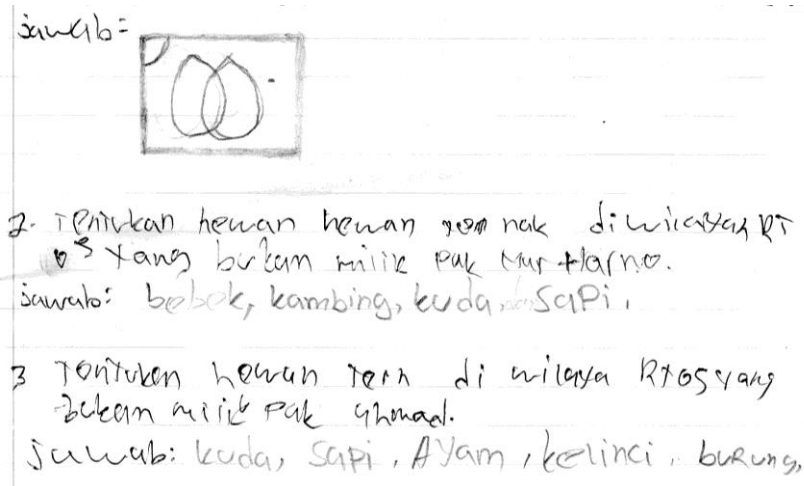 jawab=
2. Tentukan hewan hewan nak diwilayah RT
05 Yang bukan milik pak Mur Harno.
jawab: bebek, kambing, kuda, SaPi.
3 Tentukan hewan Tern di wilaya Rt05 yang
bukan milik Pak Ahmad.
jawab: kuda, SaPi, AYam, kelinci, buRung,